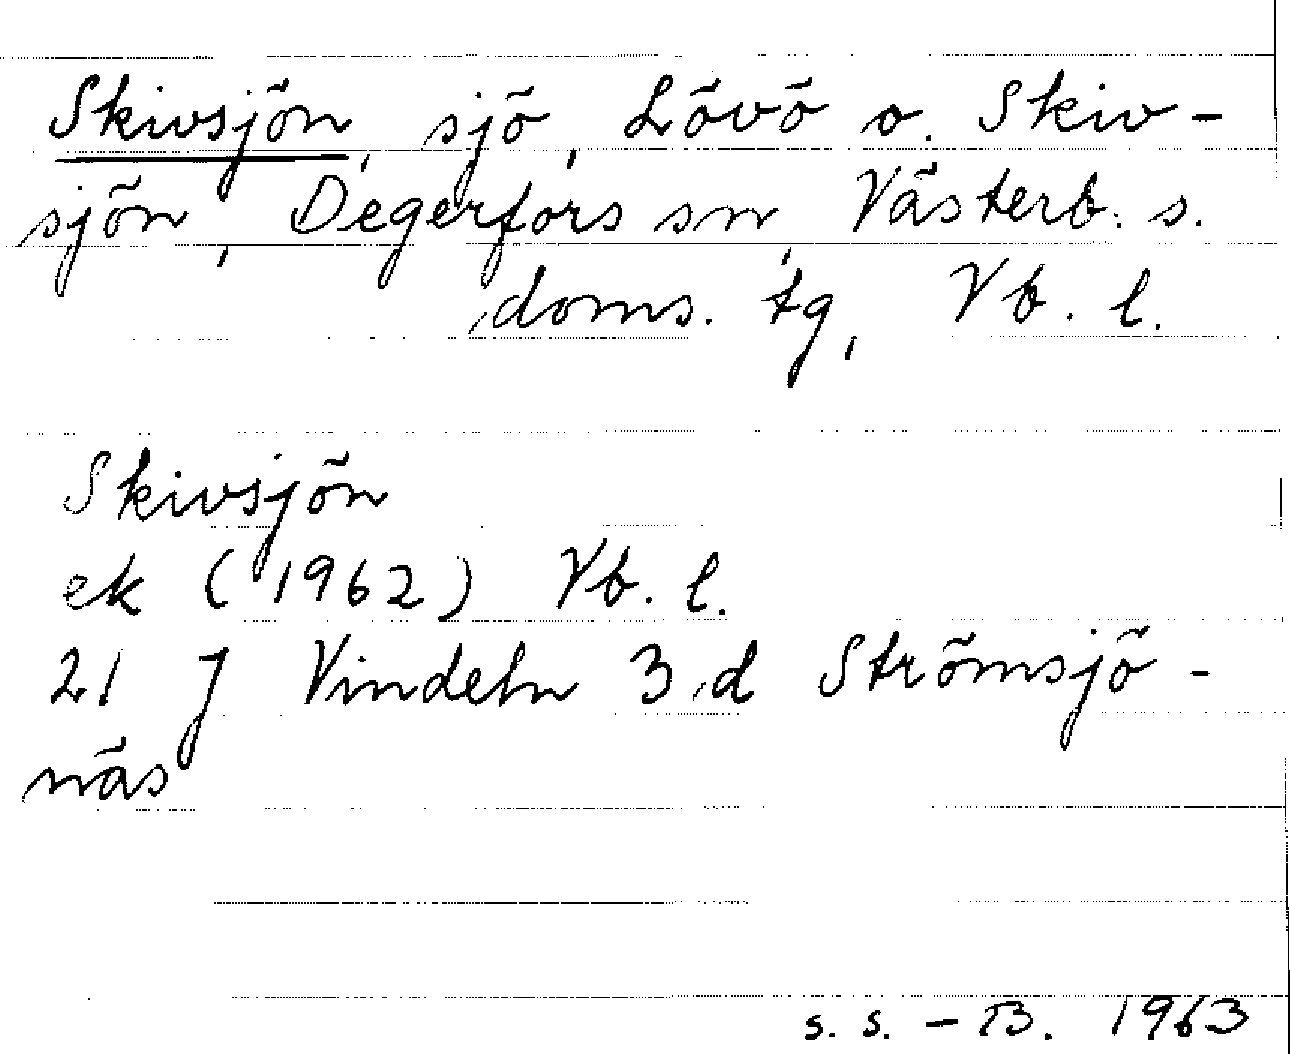 Skivsjön, sjö, Lövö o. Skiv-
sjön, Degerfors sn, Västerb. s.
doms. tg, Vb. l.
Skivsjön
ek (1962) Vb. l.
21 J Vindeln 3 d Strömsjö-
näs
s. s. - B. 1963